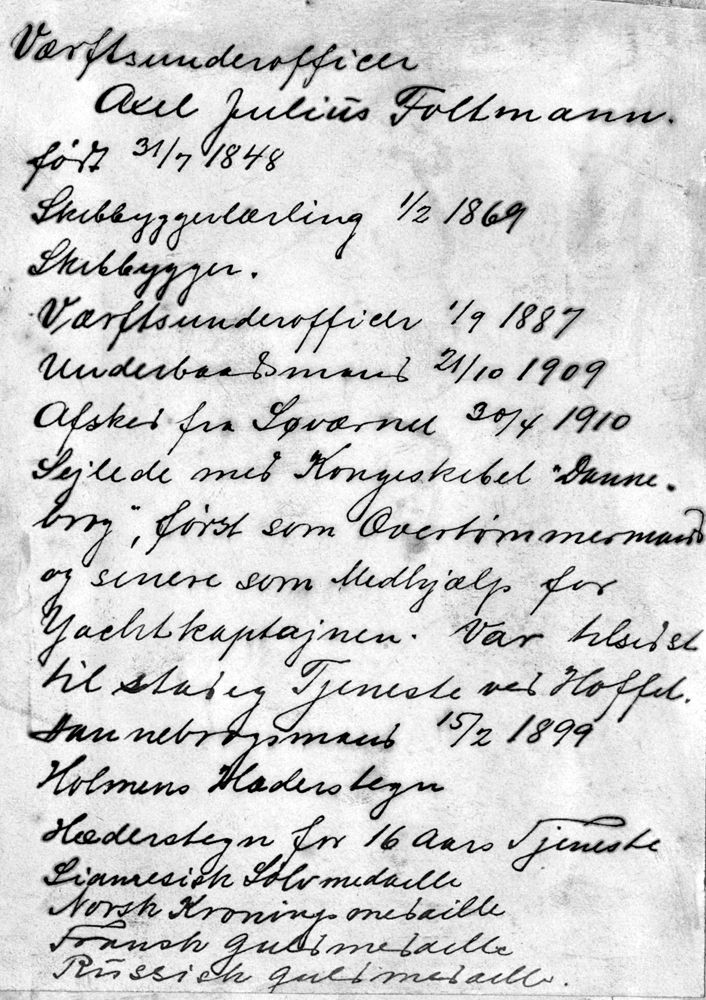 Værftsunderofficer
Axel Julius Foltmann.
født 31/7 1848
Skibbyggerlærling 1/2 1869
Skibbygger.
Værftsunderofficer 1/9 1887
Underbaadsmand 21/10 1909
Afsked fra Søværnet 30/4 1910
Sejlede med Kongeskibet "Danne-
brog", først som Overtømmermand
og senere som Medhjælp for
Yachtkaptajnen. Var tilsidst
til stadig Tjeneste ved Hoffet.
Dannebrogsmand 15/2 1899
Holmens Hæderstegn
Hæderstegn for 16 Aars Tjeneste
Siamesisk Sølvmedaille
Norsk Kroningsmedaille
Fransk Guldmedaille
Russisk Guldmedaille.